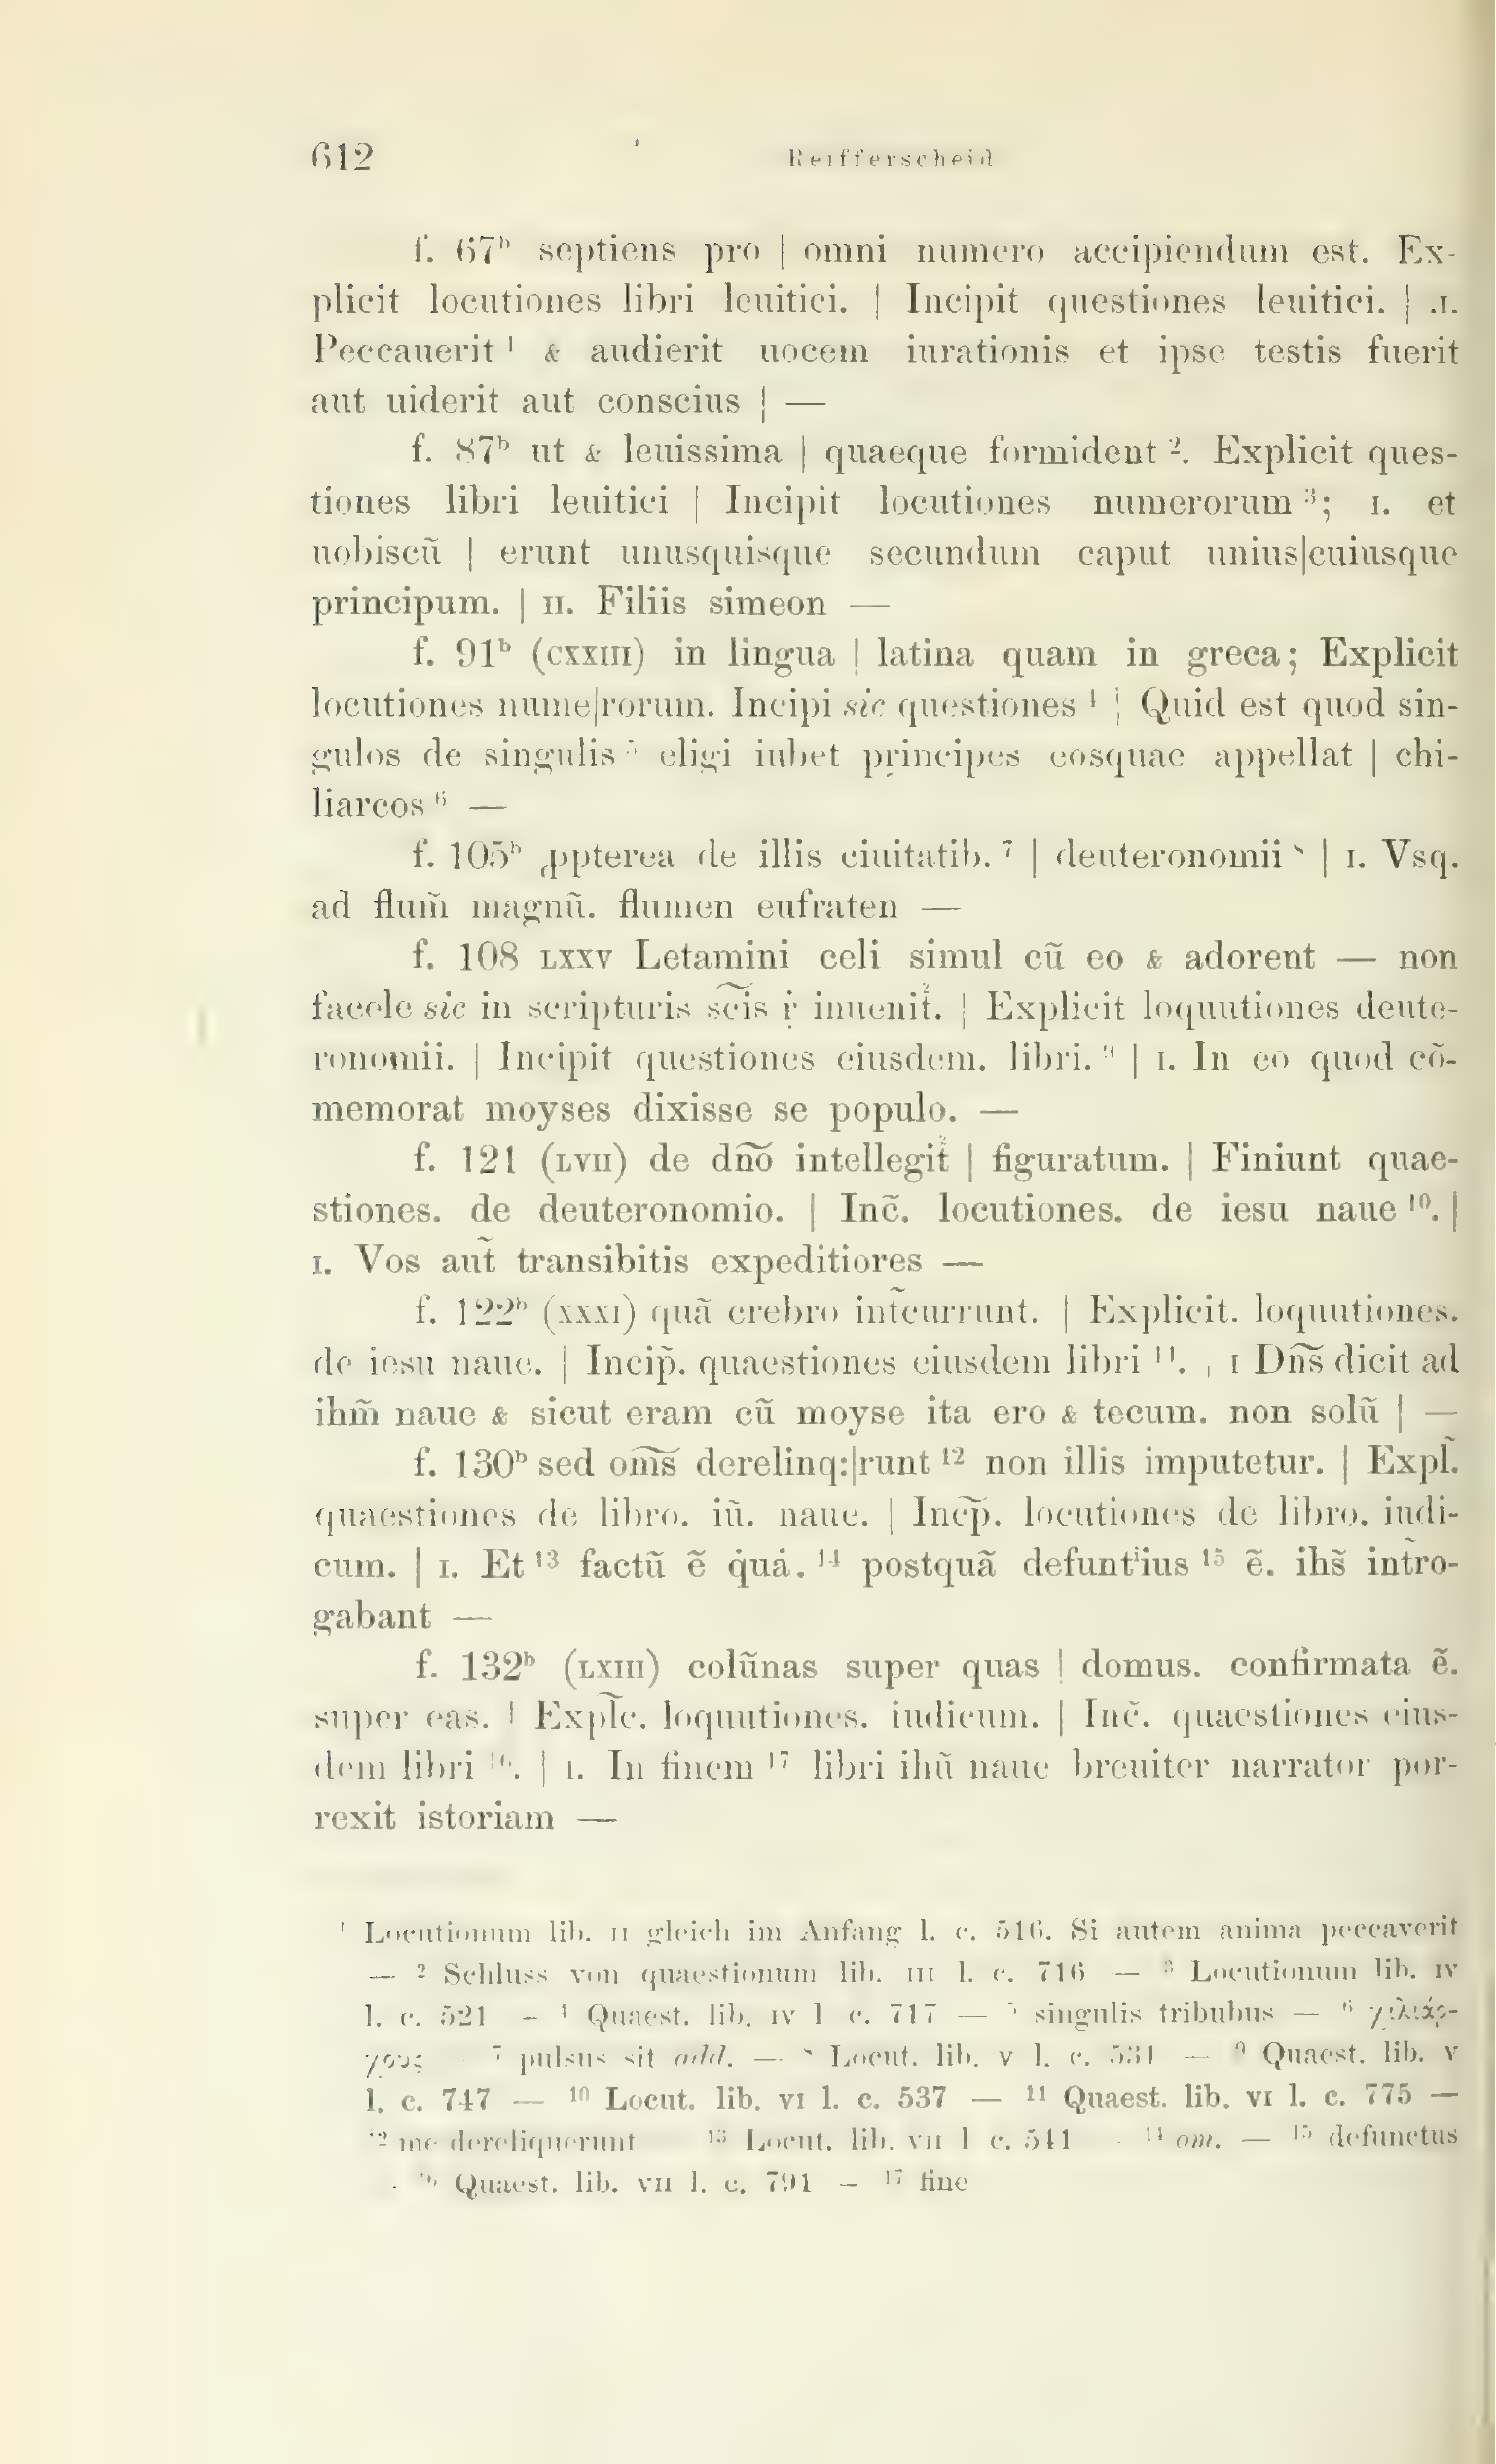 612 Reifferscheid
f. 67ᵇ septiens pro | omni numero accipiendum est. Ex-
plicit locutiones libri leuitici. | Incipit questiones leuitici. | .I.
Peccauerit ¹ & audierit uocem iurationis et ipse testis fuerit
aut uiderit aut conscius | —
f. 87ᵇ ut & leuissima | quaeque formident ². Explicit ques-
tiones libri leuitici | Incipit locutiones numerorum ³; I. et
uobiscũ | erunt unusquisque secundum caput unius|cuiusque
principum. | II. Filiis simeon —
f. 91ᵇ (CXXIII) in lingua | latina quam in greca; Explicit
locutiones nume|rorum. Incipi sic questiones ⁴ | Quid est quod sin-
gulos de singulis ⁵ eligi iubet principes eosquae appellat | chi-
liarcos ⁶ —
f. 105ᵇ ꝓpterea de illis ciuitatib. ⁷ | deuteronomii ⁸ | I. Vsq.
ad flum̃ magnũ. flumen eufraten —
f. 108 LXXV Letamini celi simul cũ eo & adorent — non
facele sic in scripturis sc̃is ṙ inuenit̃. | Explicit loquutiones deute-
ronomii. | Incipit questiones eiusdem. libri. ⁹ | I. In eo quod cõ-
memorat moyses dixisse se populo. —
f. 121 (LVII) de dño intellegit̃ | figuratum. | Finiunt quae-
stiones. de deuteronomio. | Inc̃. locutiones. de iesu naue ¹⁰. |
I. Vos aut̃ transibitis expeditiores —
f. 122ᵇ (XXXI) quã crebro int̃currunt. | Explicit. loquutiones.
de iesu naue. | Incip̃. quaestiones eiusdem libri ¹¹. | I Dñs dicit ad
ihm̃ naue & sicut eram cũ moyse ita ero & tecum. non solũ | —
f. 130ᵇ sed om̃s derelinq:|runt ¹² non illis imputetur. | Expl̃.
quaestiones de libro. iũ. naue. | Incp̃. locutiones de libro. iudi-
cum. | I. Et ¹³ factũ ẽ q̇uȧ. ¹⁴ postquã defuntⁱius ¹⁵ ẽ. ihs̃ int̃ro-
gabant —
f. 132ᵇ (LXIII) colũnas super quas | domus. confirmata ẽ.
super eas. | Expl̃c. loquutiones. iudicum. | Inc̃. quaestiones eius-
dem libri ¹⁶. | I. In finem ¹⁷ libri ihũ naue breuiter narrator por-
rexit istoriam —
¹ Locutionum lib. II gleich im Anfang l. c. 516. Si autem anima peccaverit
— ² Schluss von quaestionum lib. III l. c. 716 — ³ Locutionum lib. IV
l. c. 521 — ⁴ Quaest. lib. IV l c. 717 — ⁵ singulis tribubus — ⁶ χιλιάρ-
χους ⁷ pulsus sit add. — ⁸ Locut. lib. V l. c. 531 — ⁹ Quaest. lib. V
l. c. 747 — ¹⁰ Locut. lib. VI l. c. 537 — ¹¹ Quaest. lib. VI l. c. 775 —
¹² me dereliquerunt ¹³ Locut. lib. VII l c. 541 - ¹⁴ om. — ¹⁵ defunctus
- ¹⁶ Quaest. lib. VII l. c. 791 — ¹⁷ fine